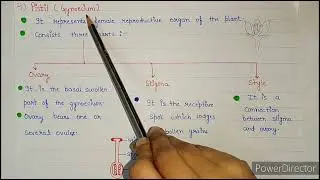 4) Pistil (Gynoecium)
It represents female reproductive organ of the plant
Consists three :-
Ovary
Stigma
Style
It is the basal swollen
part of the gynoecium.
Ovary bears one or
several ovules.
It is the receptive
spot which lodges
pollen grains
It is a
connection
between stigma
and ovary.
PowerDirector